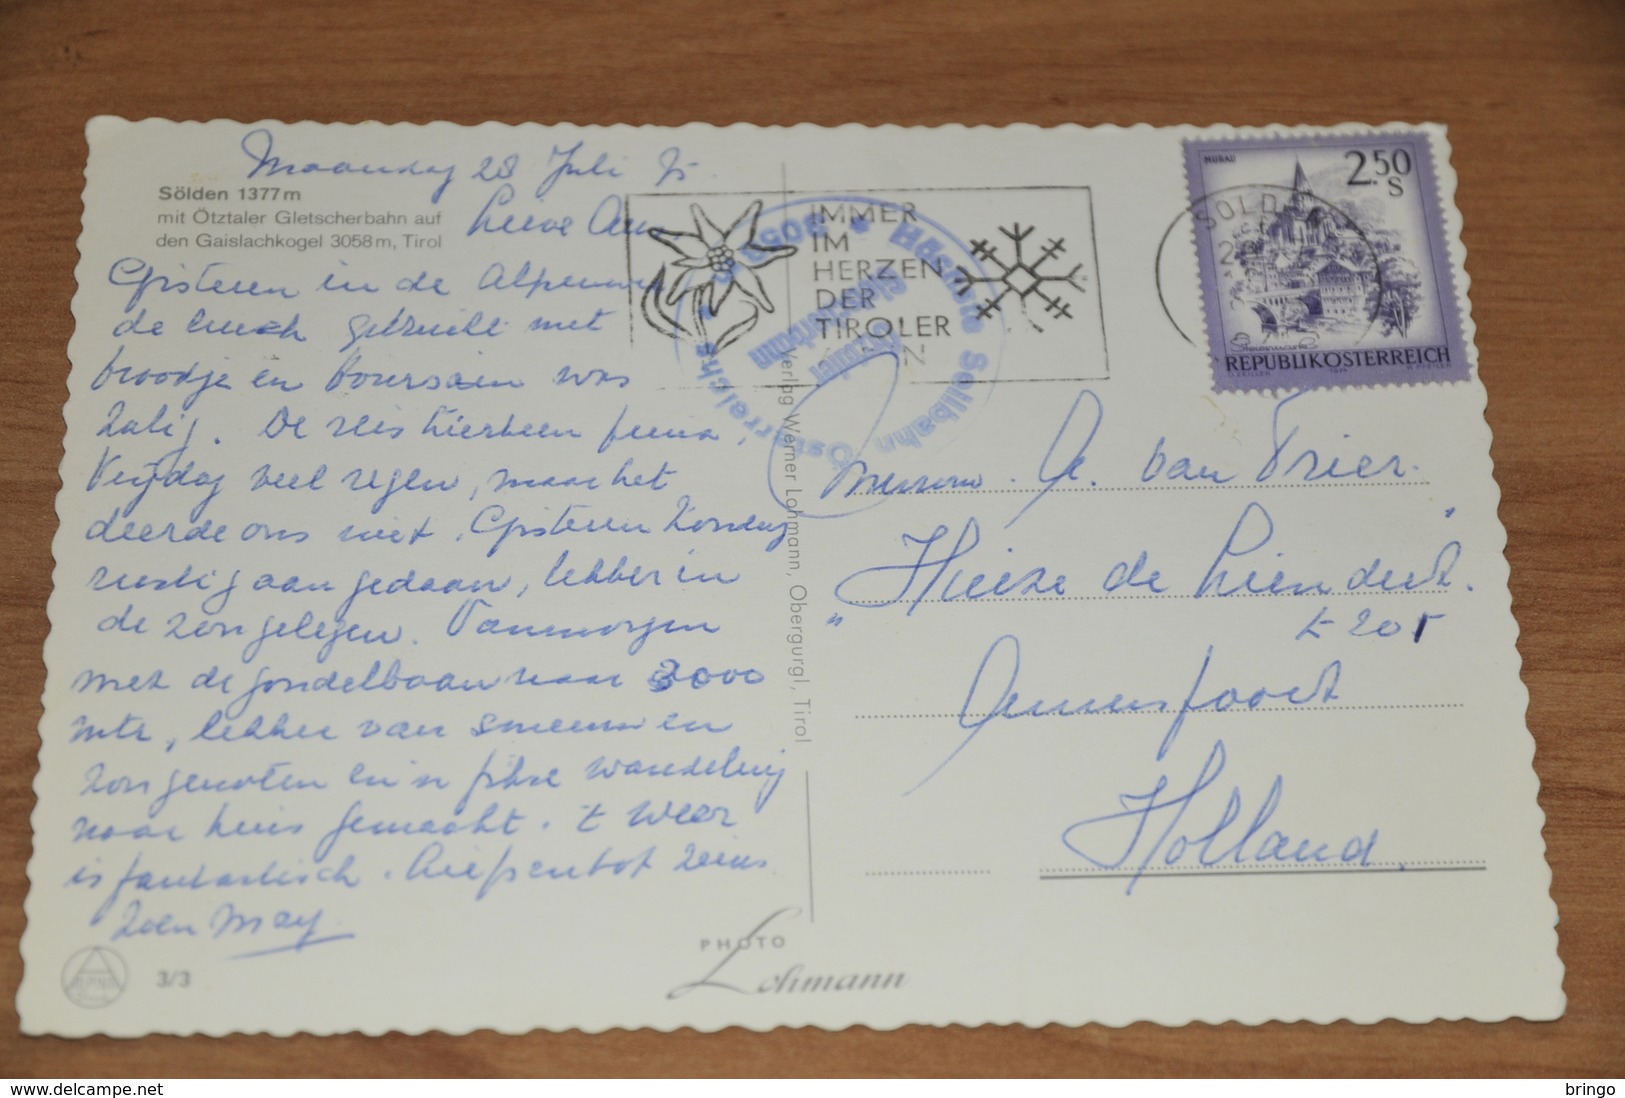 Maandag 28 Juli 75.
Sölden 1377 m
mit Ötztaler Gletscherbahn auf
den Gaislachkogel 3058 m, Tirol
Lieve
Gisteren in de
de lunch gebruikt met
broodje en was
zalig. De reis hierheen prima,
Vrijdag veel regen, maar het
deerde ons niet. Gisteren Zondag
rustig aan gedaan, lekker in
de zon gelegen. Vanmorgen
met de gondelbaan naar 3000
mtr, lekker van sneeuw en
zon genoten en 'n fikse wandeling
naar huis gemaakt. 't Weer
is fantastisch.
zoen May
3/3
PHOTO
Lohmann
Verlag Werner Lohmann, Obergurgl, Tirol
IMMER
IM
HERZEN
DER
TIROLER
Höchste Seilbahn Österreichs
MURAU
2.50
S
REPUBLIK ÖSTERREICH
Mevrouw. A. van Trier.
"Huize de Liendert."
k 205
Amersfoort
Holland.
https://www.delcampe.net
bringo